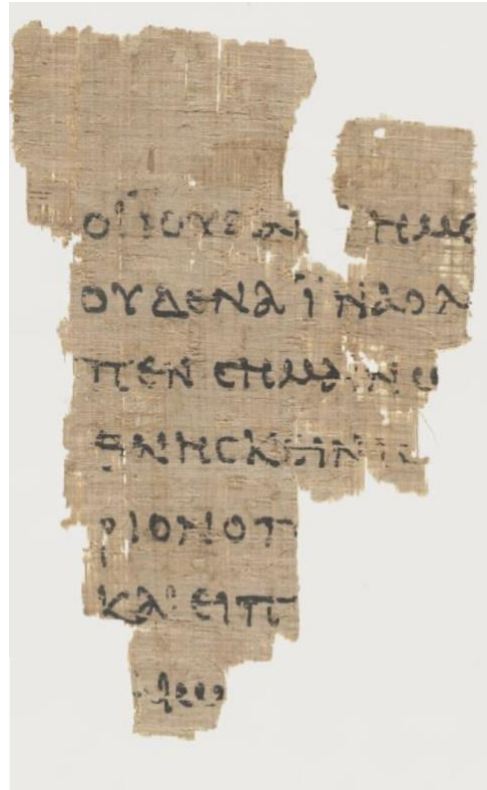 ΟΙ ΙΟΥΔΑΙ ΗΜΕ
ΟΥΔΕΝΑ ΙΝΑ ΟΛ
ΠΕΝ ΣΗΜΑΙΝΩ
ΘΝΗΣΚΕΙΝ ΙΣ
ΡΙΟΝ Ο Π
ΚΑΙ ΕΙΠ
ΑΙΩ